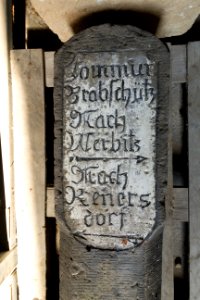 Commun
Grabschütz
Nach
Werbitz
Nach
Reners
dorf